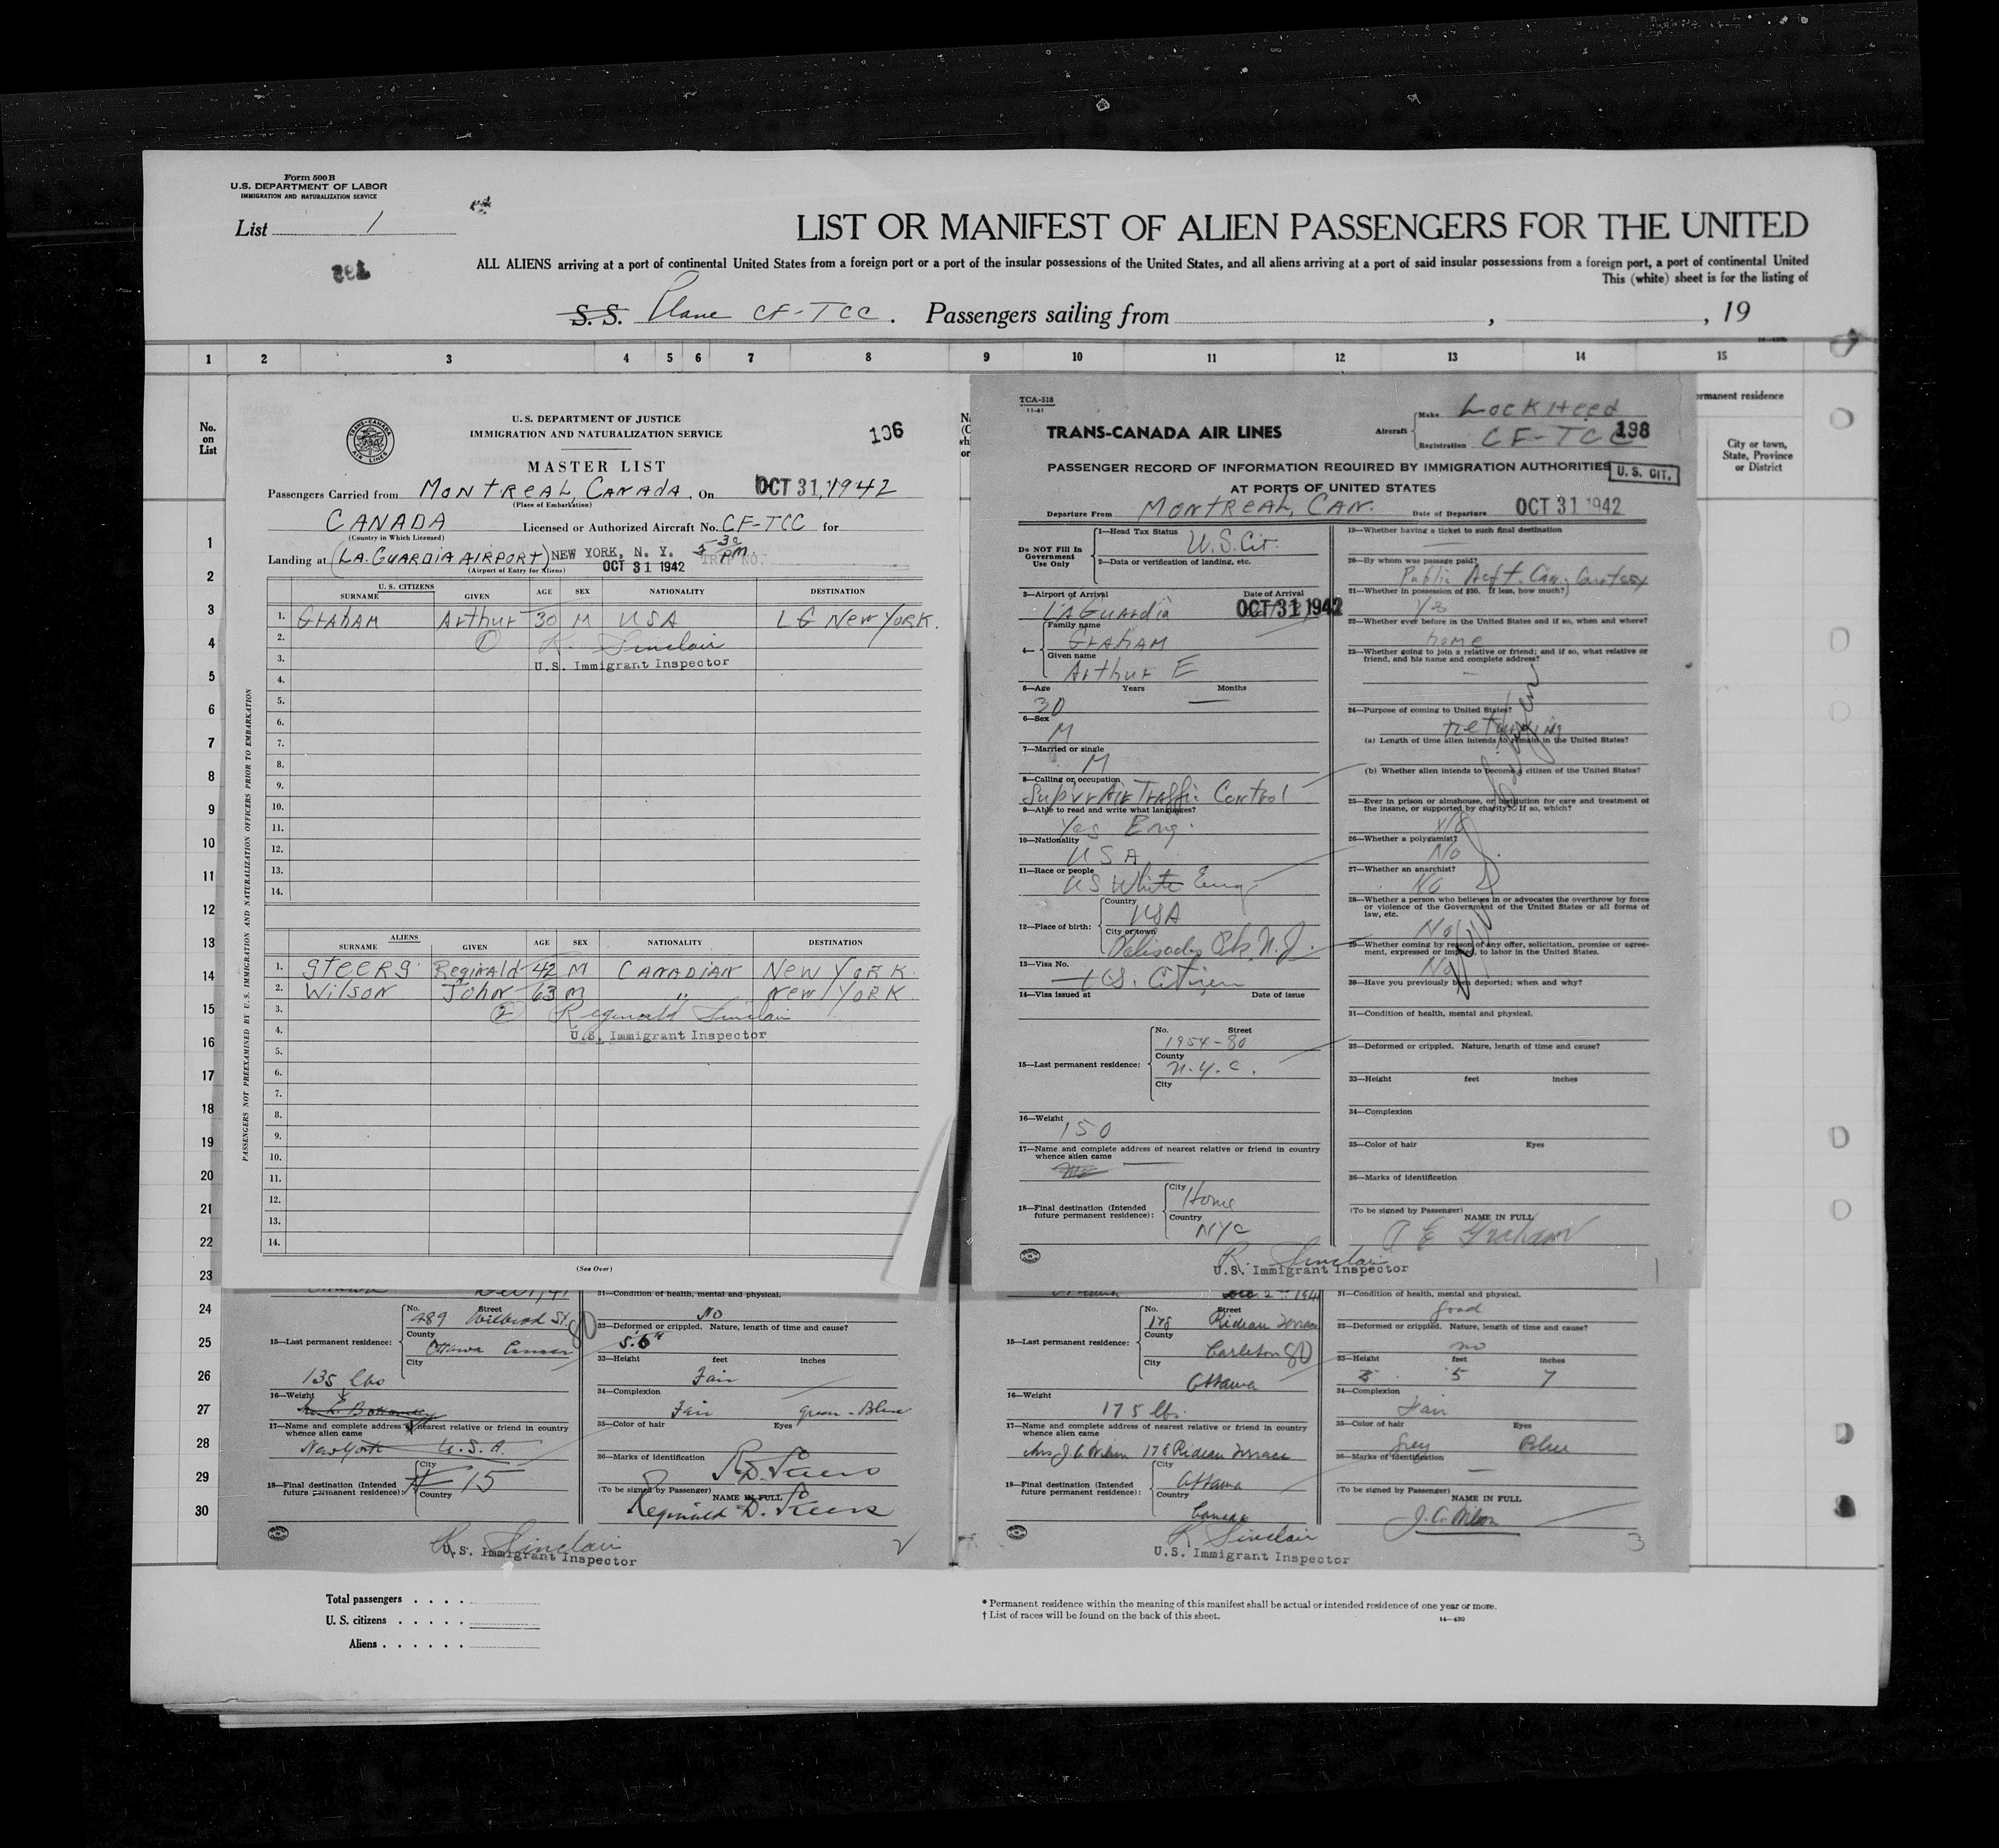 Form 500 B
U.S. DEPARTMENT OF LABOR
IMMIGRATION AND NATURALIZATION SERVICE
List 1
LIST OR MANIFEST OF ALIEN PASSENGERS FOR THE UNITED
ALL ALIENS arriving at a port of continental United States from a foreign port or a port of the insular possessions of the United States, and all aliens arriving at a port of said insular possessions from a foreign port, a port of continental United
This (white) sheet is for the listing of
S.S. Plane CF-TCC. Passengers sailing from , , 19
1 2 3 4 5 6 7 8 9 10 11 12 13 14 15
No. on List
1
2
3
4
5
6
7
8
9
10
11
12
13
14
15
16
17
18
19
20
21
22
23
24
25
26
27
28
29
30
ermanent residence
City or town, State, Province or District
TRANS-CANADA AIR LINES
U.S. DEPARTMENT OF JUSTICE
IMMIGRATION AND NATURALIZATION SERVICE
106
MASTER LIST
Passengers Carried from MONTREAL, CANADA, On OCT 31, 1942
(Place of Embarkation)
CANADA Licensed or Authorized Aircraft No. CF-TCC for
(Country in Which Licensed)
Landing at (LA.GUARDIA AIRPORT) NEW YORK, N. Y. 5 30 PM. TRIP NO.
(Airport of Entry for Aliens) OCT 31 1942
PASSENGERS NOT PREEXAMINED BY U. S. IMMIGRATION AND NATURALIZATION OFFICERS PRIOR TO EMBARKATION
U.S. CITIZENS
SURNAME GIVEN AGE SEX NATIONALITY DESTINATION
1. GRAHAM Arthur 30 M USA LG New YORK.
2. R. Sinclair
3. U.S. Immigrant Inspector
4.
5.
6.
7.
8.
9.
10.
11.
12.
13.
14.
ALIENS
SURNAME GIVEN AGE SEX NATIONALITY DESTINATION
1. STEERS Reginald 42 M CANADIAN New YORK.
2. Wilson John 63 M " New YORK.
3. 2 Reginald Sinclair
4. U.S. Immigrant Inspector
5.
6.
7.
8.
9.
10.
11.
12.
13.
14.
(See Over)
TCA-518
11-41
Make Lockheed
TRANS-CANADA AIR LINES Aircraft
Registration CF-TCC 198
PASSENGER RECORD OF INFORMATION REQUIRED BY IMMIGRATION AUTHORITIES U. S. CIT.
AT PORTS OF UNITED STATES
Departure From MONTREAL, CAN. Date of Departure OCT 31 1942
Do NOT Fill In Government Use Only
1—Head Tax Status
U.S. Cit.
2—Data or verification of landing, etc.
3—Airport of Arrival Date of Arrival
LA Guardia OCT 31 1942
4— Family name
GRAHAM
Given name
Arthur E
5—Age Years Months
30 —
6—Sex
M
7—Married or single
M
8—Calling or occupation
Supvr Air Traffic Control
9—Able to read and write what languages?
Yes Eng.
10—Nationality
USA
11—Race or people
US White Eng
12—Place of birth: Country
USA
City or town
Palisades Pk N.J.
13—Visa No.
U.S. Citizen
14—Visa issued at Date of issue
15—Last permanent residence: No. Street
1954-80
County
N.Y.C.
City
16—Weight
150
17—Name and complete address of nearest relative or friend in country
whence alien came
18—Final destination (Intended
future permanent residence):
City
Home
Country
NYC
R. Sinclair
U.S. Immigrant Inspector
19—Whether having a ticket to such final destination
—
20—By whom was passage paid?
21—Whether in possession of $50. If less, how much?
22—Whether ever before in the United States and if so, when and where?
home
23—Whether going to join a relative or friend; and if so, what relative or
friend, and his name and complete address?
—
24—Purpose of coming to United States?
returning
(a) Length of time alien intends to remain in the United States?
(b) Whether alien intends to become a citizen of the United States?
25—Ever in prison or almshouse, or institution for care and treatment of
the insane, or supported by charity? If so, which?
26—Whether a polygamist?
No
27—Whether an anarchist?
No
28—Whether a person who believes in or advocates the overthrow by force
or violence of the Government of the United States or all forms of
law, etc.
No
29—Whether coming by reason of any offer, solicitation, promise or agree-
ment, expressed or implied, to labor in the United States.
No
30—Have you previously been deported; when and why?
31—Condition of health, mental and physical.
32—Deformed or crippled. Nature, length of time and cause?
33—Height feet inches
34—Complexion
35—Color of hair Eyes
36—Marks of identification
(To be signed by Passenger)
NAME IN FULL
A E Graham
15—Last permanent residence: No. Street
489 Wilbrod St.
County
Ottawa Canada
City
80
135 lbs
16—Weight
17—Name and complete address of nearest relative or friend in country
whence alien came
New York U.S.A.
18—Final destination (Intended
future permanent residence):
City
15
Country
R. Sinclair
U.S. Immigrant Inspector
31—Condition of health, mental and physical.
No
32—Deformed or crippled. Nature, length of time and cause?
5.6"
33—Height feet inches
Fair
34—Complexion
Fair green-Blue
35—Color of hair Eyes
36—Marks of identification
R.D. Steers
(To be signed by Passenger)
NAME IN FULL
Reginald D. Steers
2
15—Last permanent residence: No. Street
178 Rideau Terrace
County
Carleton 80
City
Ottawa
16—Weight
175 lbs.
17—Name and complete address of nearest relative or friend in country
whence alien came
Mrs J C Wilson 178 Rideau Terrace
18—Final destination (Intended
future permanent residence):
City
Ottawa
Country
Canada
R Sinclair
U.S. Immigrant Inspector
31—Condition of health, mental and physical.
good
32—Deformed or crippled. Nature, length of time and cause?
no
33—Height feet inches
5 7
34—Complexion
Fair
35—Color of hair Eyes
Grey Blue
36—Marks of identification
—
(To be signed by Passenger)
NAME IN FULL
J. C. Wilson
3
Total passengers . . . .
U. S. citizens . . . . .
Aliens . . . . . .
* Permanent residence within the meaning of this manifest shall be actual or intended residence of one year or more.
† List of races will be found on the back of this sheet.
14—430